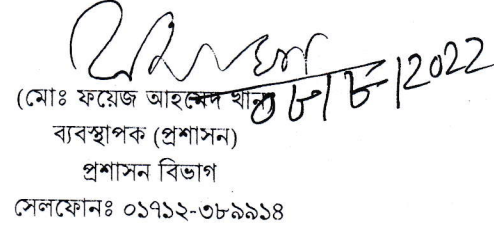 ০৮/৮/2022
(মোঃ ফয়েজ আহমেদ খান)
ব্যবস্থাপক (প্রশাসন)
প্রশাসন বিভাগ
সেলফোনঃ ০১৭১২-৩৮৯৯১৪